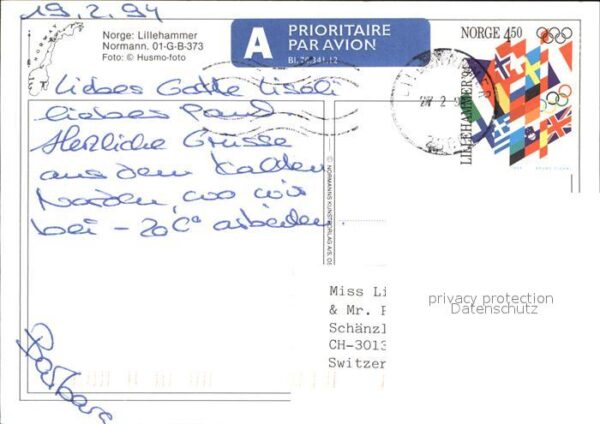 19.2.94
NORWAY
Norge: Lillehammer
Normann. 01-G-B-373
Foto: © Husmo-foto
A PRIORITAIRE
PAR AVION
Bl. 70.341.12
NORGE 4.50
LILLEHAMMER '94
Liebes Gotte Liseli
liebes Paul
Herzliche Grüsse
aus dem kalten
Norden, wo wir
bei -20C° arbeiten
Barbara
© NORMANNS KUNSTFORLAG A/S, OS
Miss Li
& Mr. P
Schänzl
CH-3013
Switzer
privacy protection
Datenschutz